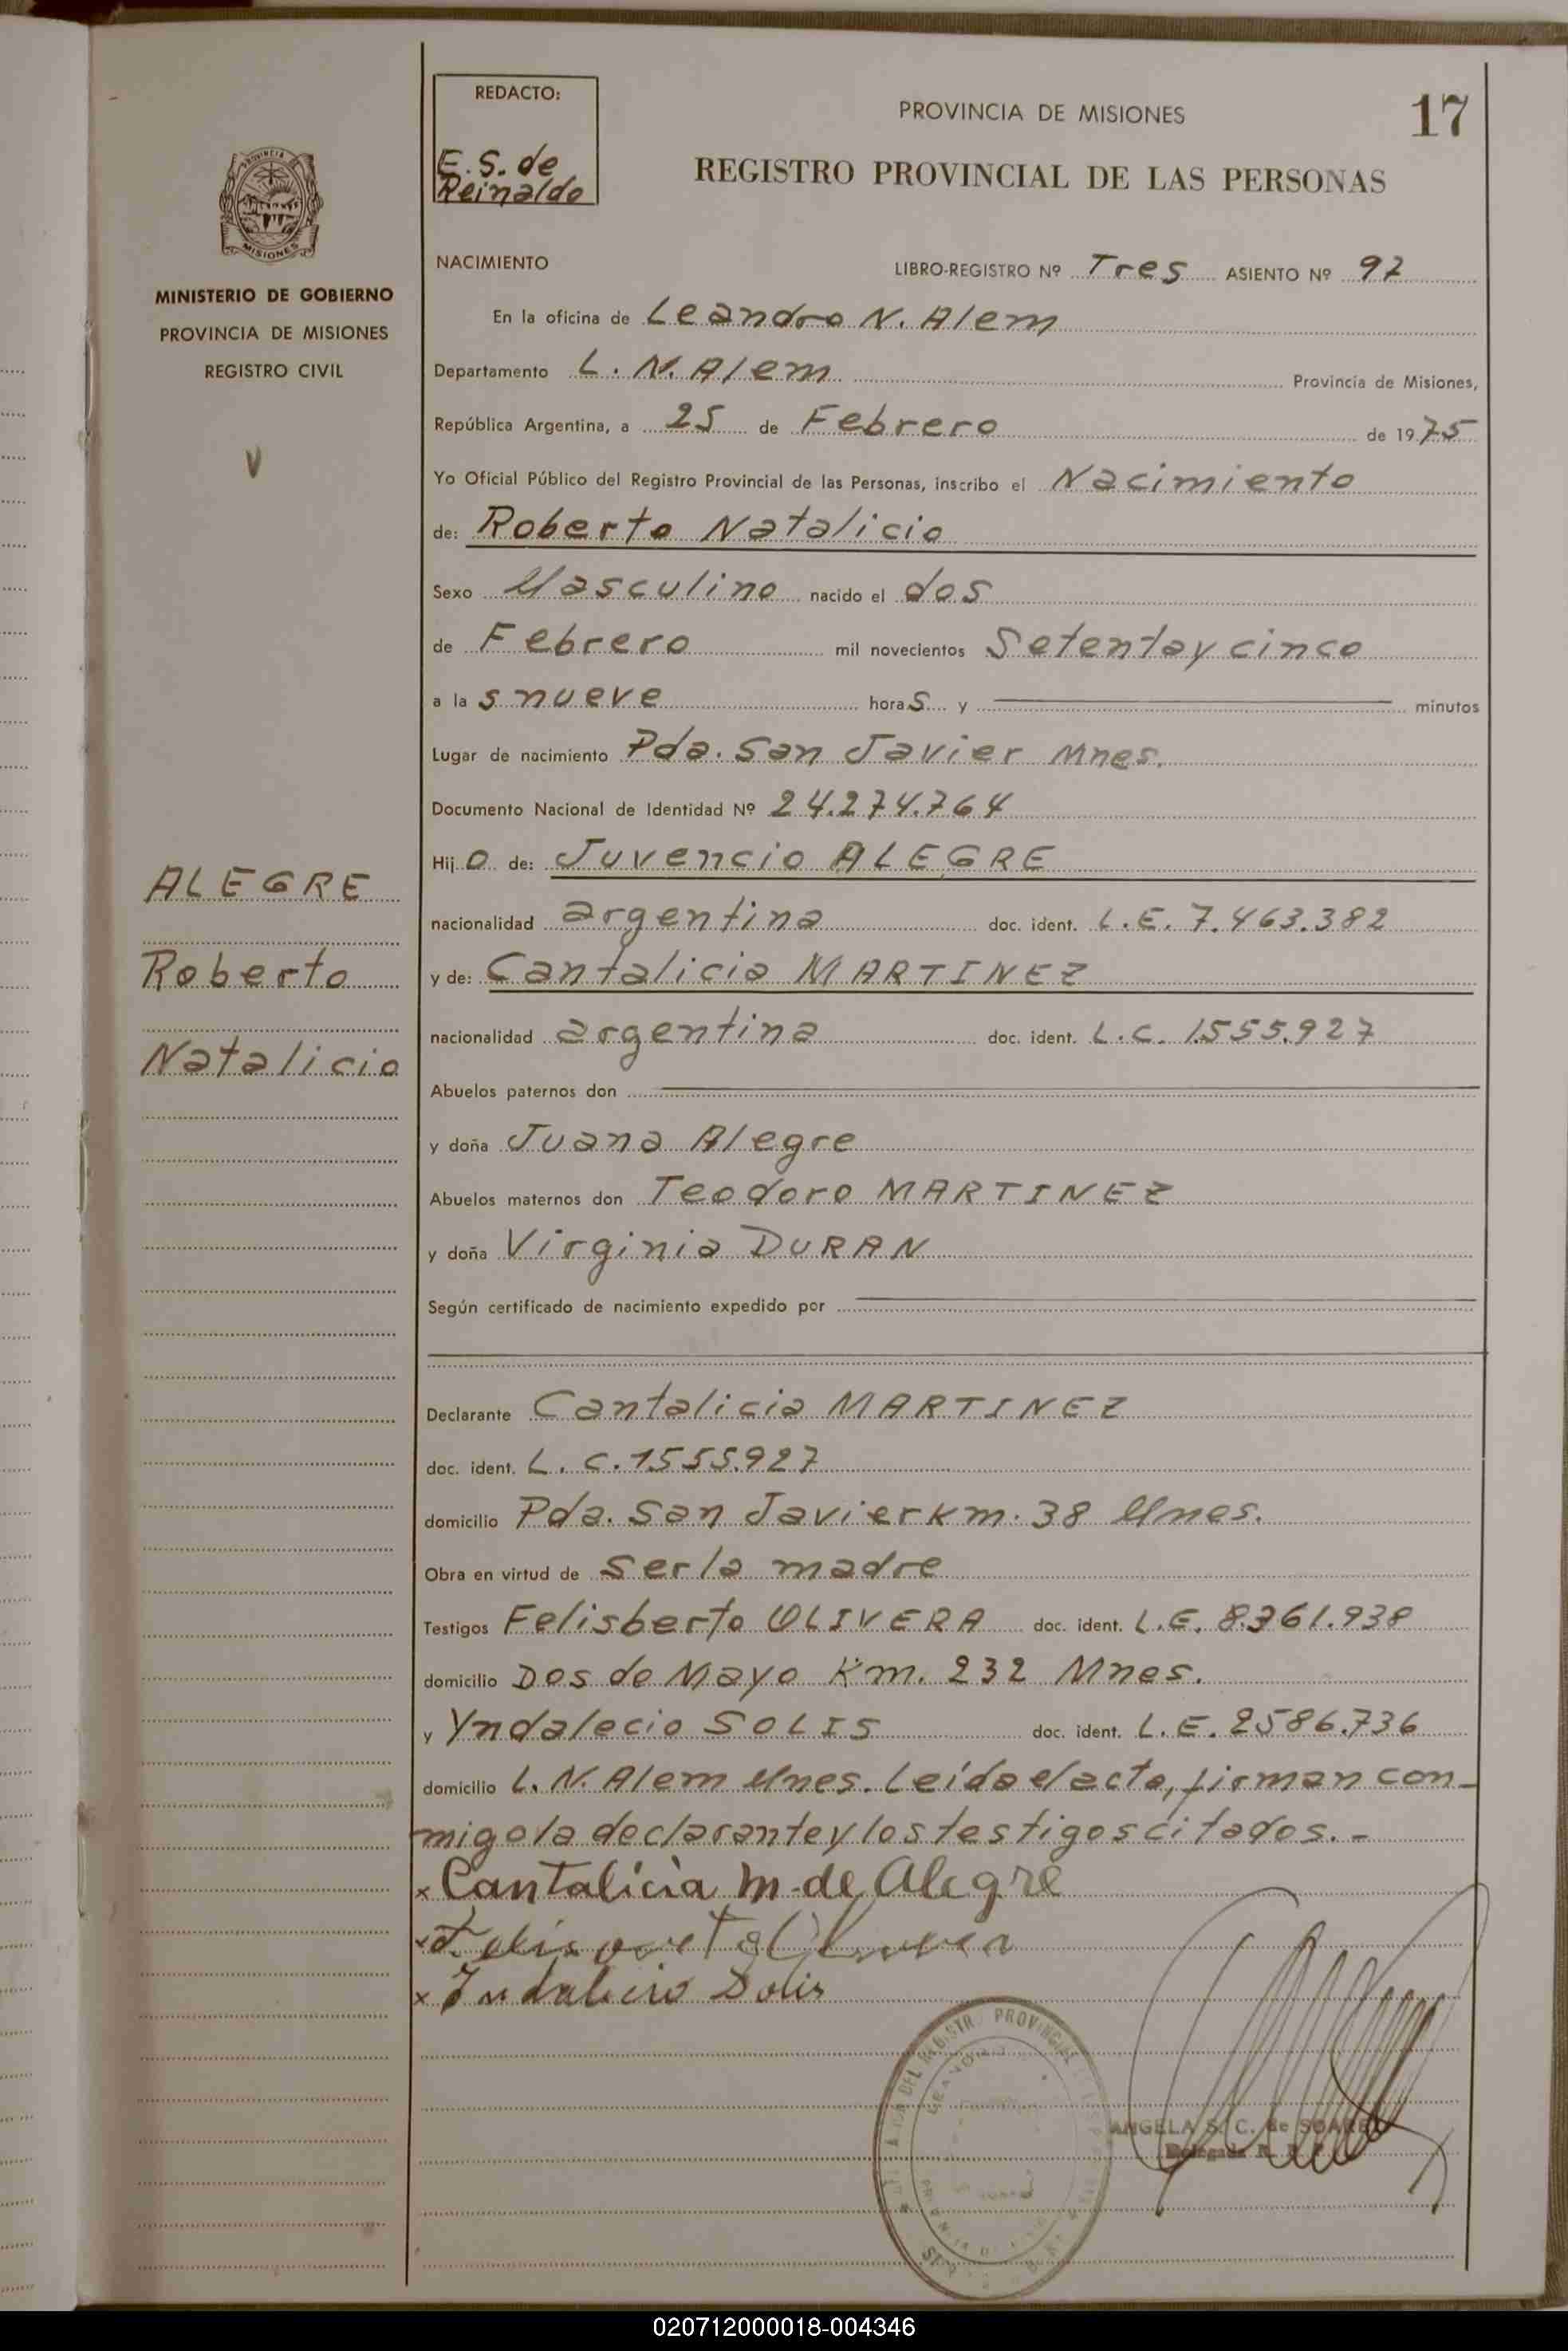 REDACTO:
E. S. de
Reinaldo
PROVINCIA DE MISIONES
17
REGISTRO PROVINCIAL DE LAS PERSONAS
PROVINCIA DE
MISIONES
MINISTERIO DE GOBIERNO
PROVINCIA DE MISIONES
REGISTRO CIVIL
V
NACIMIENTO LIBRO-REGISTRO Nº Tres ASIENTO Nº 97
En la oficina de Leandro N. Alem
Departamento L. N. Alem Provincia de Misiones,
República Argentina, a 25 de Febrero de 1975
Yo Oficial Público del Registro Provincial de las Personas, inscribo el Nacimiento
de: Roberto Natalicio
Sexo Masculino nacido el dos
de Febrero mil novecientos Setentay cinco
a las nueve horas y minutos
Lugar de nacimiento Pda. San Javier Mnes.
Documento Nacional de Identidad Nº 24.274.764
Hijo de: Juvencio ALEGRE
nacionalidad argentina doc. ident. L.E. 7.463.382
y de: Cantalicia MARTINEZ
nacionalidad argentina doc. ident. L.C. 1555.927
Abuelos paternos don
y doña Juana Alegre
Abuelos maternos don Teodoro MARTINEZ
y doña Virginia DURAN
Según certificado de nacimiento expedido por
Declarante Cantalicia MARTINEZ
doc. ident. L. C. 1555.927
domicilio Pda. San Javier Km. 38 Mnes.
Obra en virtud de ser la madre
Testigos Felisberto OLIVERA doc. ident. L.E. 8.361.938
domicilio Dos de Mayo Km. 232 Mnes.
y Yndalecio SOLIS doc. ident. L.E. 2586.736
domicilio L. N. Alem Mnes. Leída el acta, firman con-
migo la declarante y los testigos citados.-
x Cantalicia M. de Alegre
x Felisberto Olivera
x Indalicio Solis
ALEGRE
Roberto
Natalicio
DEL REGISTRO PROVINCIAL
ANGELA S. C. de SOAREZ
Delegada R. P. P.
020712000018-004346